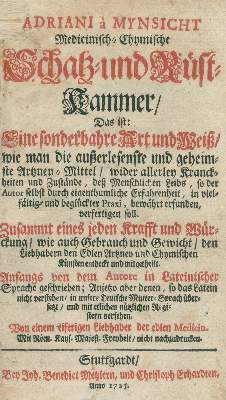 ADRIANI à MYNSICHT
Medicinisch-Chymische
Schatz-und Rüst-
Kammer/
Das ist:
Eine sonderbahre Art und Weiß/
wie man die außerlesenste und geheim-
ste Artzney-Mittel/ wider allerley Kranck-
heiten und Zustände, deß Menschlichen Leibs, so der
Autor selbst durch eigenthumliche Erfahrenheit, in viel-
fältig-und beglückter Praxi, bewährt erfunden,
verfertigen soll.
Zusammt eines jeden Krafft und Wür-
ckung/ wie auch Gebrauch und Gewicht/ den
Liebhabern der Edlen Artzney und Chymischen
Künsten entdeckt und mitgetheilt.
Anfangs von dem Autore in Lateinischer
Sprache geschrieben; Anjetzo aber denen, so das Latein
nicht verstehen/ in unsere Teutsche Mutter-Sprach über-
setzt/ und mit etlichen nützlichen Re-
gistern versehen.
Von einem eiferigen Liebhaber der edlen Medicin.
Mit Röm. Kays. Majest. Freyheit/ nicht nachzudrucken.
Stuttgardt/
Bey Joh. Benedict Metzlern, und Christoph Erhardten.
Anno 1725.